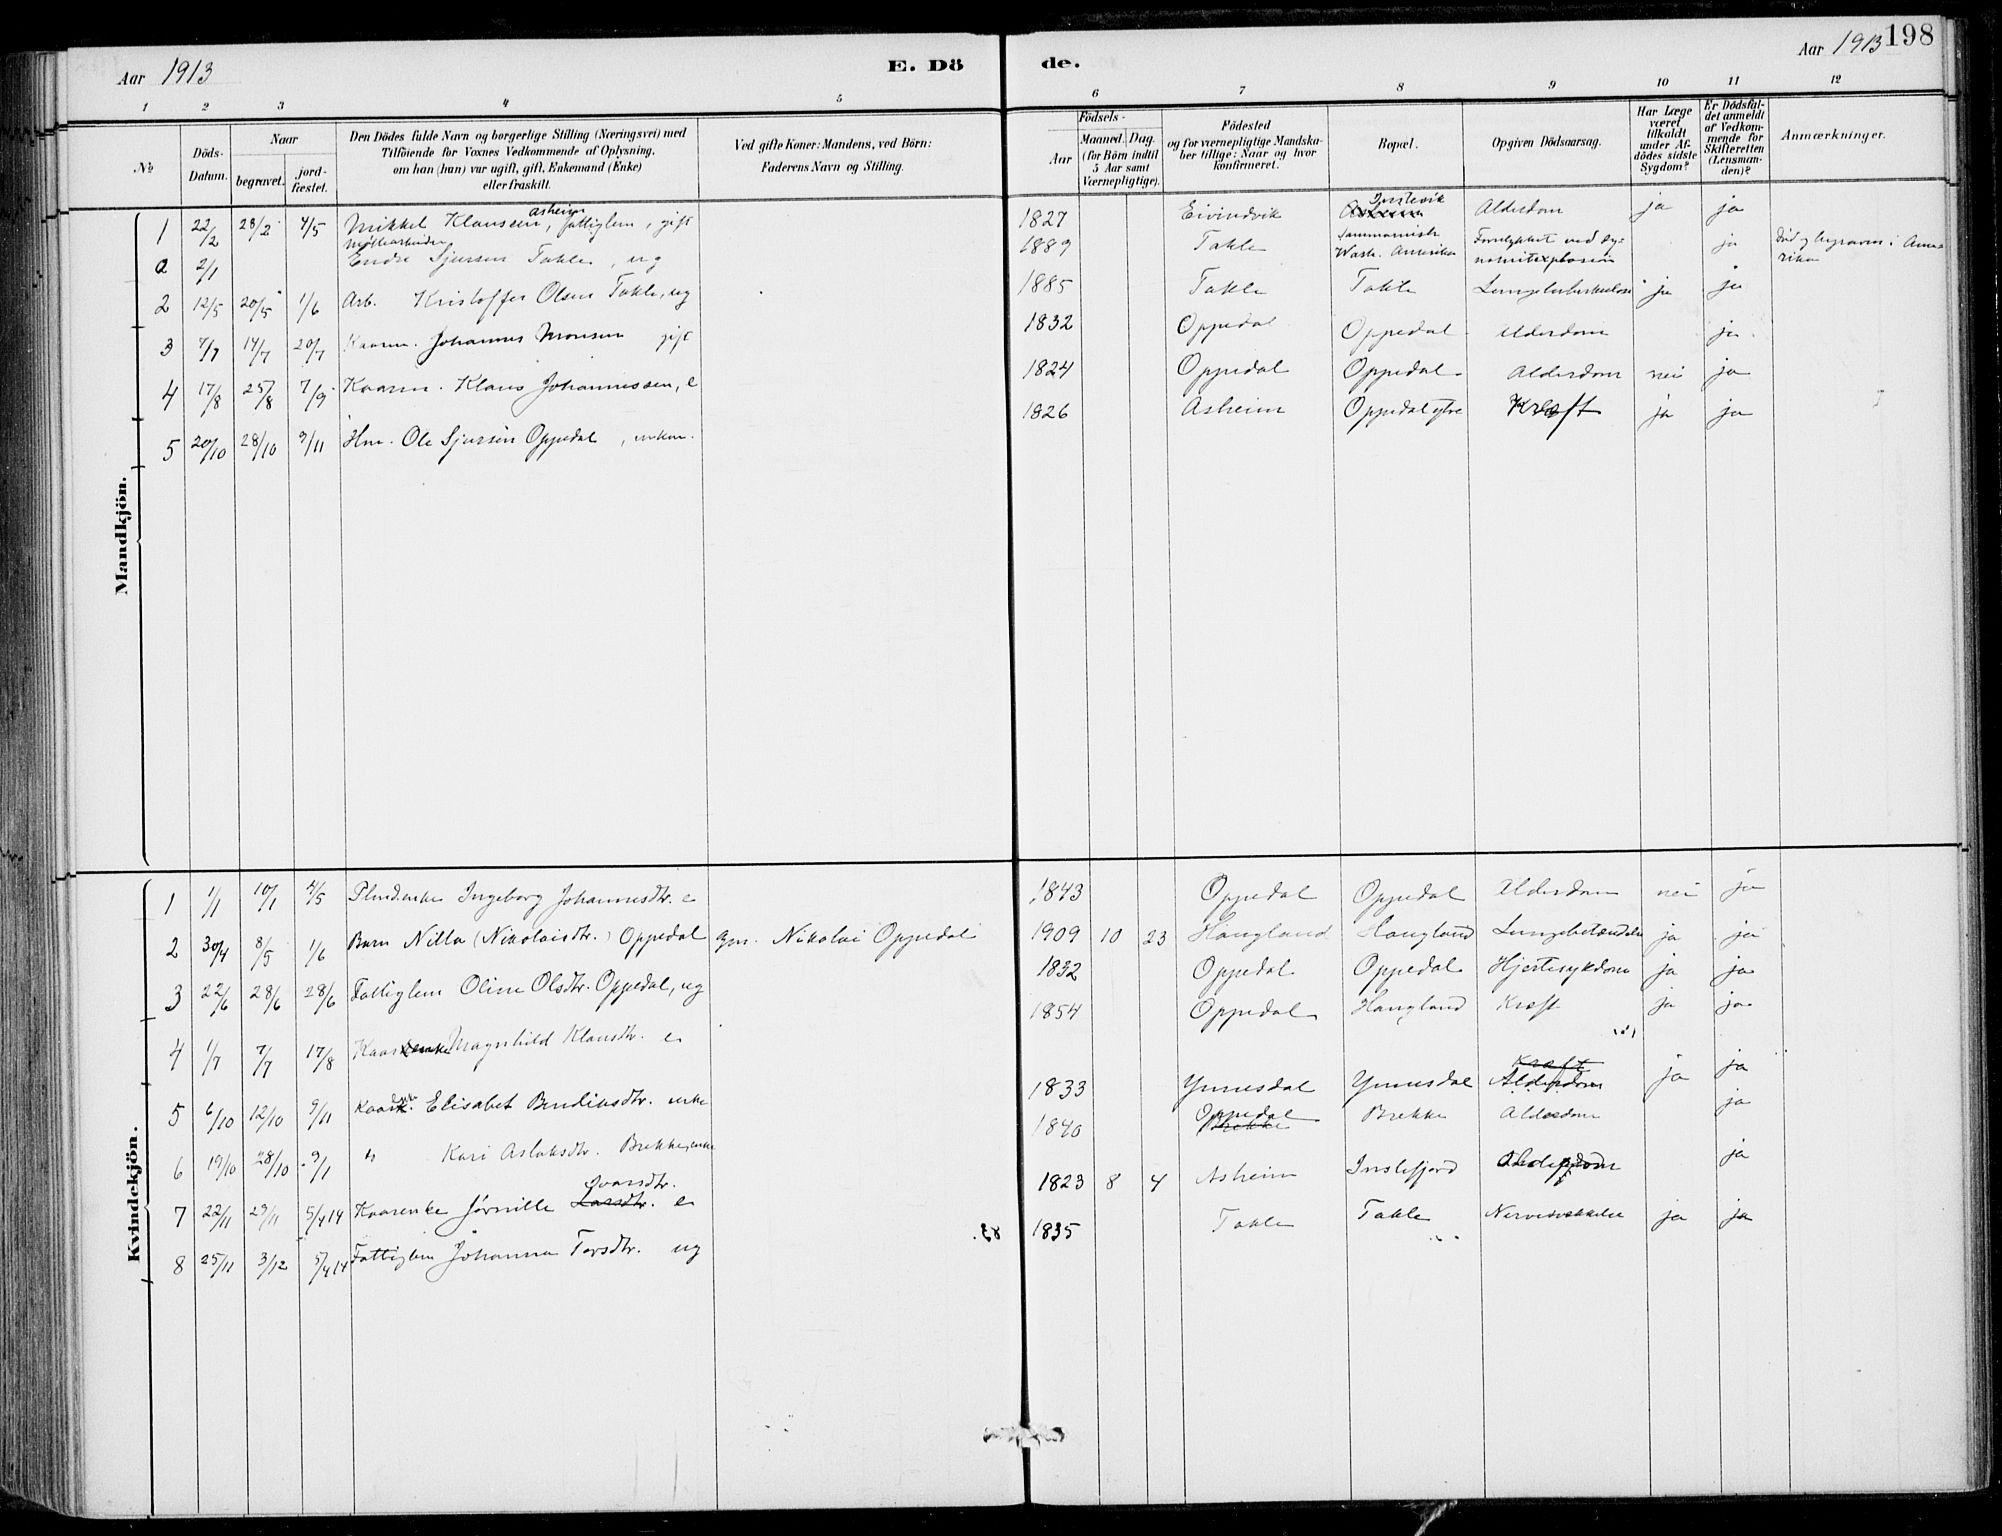 Aar 1913 E. Dö de. Aar 1913 198
1 2 3 4 5 6 7 8 9 10 11 12
№ Döds-Datum. Naar begravet. jord-fæstet. Den Dödes fulde Navn og borgerlige Stilling (Næringsvei) med Tilföiende for Voxnes Vedkommende af Oplysning, om han (hun) var ugift, gift, Enkemand (Enke) eller fraskilt. Ved gifte Koner: Mandens, ved Börn: Faderens Navn og Stilling. Födsels- Aar Maaned. Dag. (for Börn indtil 5 Aar samt Værnepligtige). Födested og for værnepligtige Mandskaber tillige: Naar og hvor konfirmeret. Bopæl. Opgiven Dödsaarsag. Har Læge været tilkaldt under Afdödes sidste Sygdom? Er Dödsfaldet anmeldt af Vedkommende for Skifteretten (Lensmanden)? Anmærkninger.
Mandkjön.
1 22/2 28/2 4/5 Mikkel Klausen Asheim, fattiglem, gift 1827 Eivindvik Instevik Alderdom ja ja
a 2/1 Endre Sjursen Takle, ug 1889 Takle Wash. Amerika Forulykket ved dynamitexplosion ja Död og begraven i Amerika
2 12/5 20/5 1/6 Arb. Kristoffer Olsen Takle, ug 1885 Takle Takle Lungetuberkulose ja ja
3 7/7 14/7 20/7 Kaarm. Johannes Monsen gift 1832 Oppedal Oppedal Alderdom ja
4 17/8 25/8 7/9 Kaarm. Klaus Johannessen, e 1824 Oppedal Oppedal Alderdom nei ja
5 20/10 28/10 9/11 Hm. Ole Sjursen Oppedal, enkem. 1826 Asheim Oppedal ytre Kræft ja ja
Kvindekjön.
1 1/1 10/1 4/5 Ingeborg Johannesdtr. e 1843 Oppedal Oppedal Alderdom nei ja
2 30/4 8/5 1/6 Barn Nilla (Nikolaisdtr.) Oppedal Gm. Nikolai Oppedal 1909 10 23 Haugland Haugland Lungebetændelse ja ja
3 22/6 28/6 28/6 Fattiglem Oline Olsdtr. Oppedal, ug 1832 Oppedal Oppedal Hjertesykdom ja ja
4 1/7 7/7 17/8 Kaarenke Magnhild Klausdtr. e 1854 Oppedal Haugland Kræft ja ja
5 6/10 12/10 9/11 Elisabet Bendiksdtr. enke 1833 Ynnesdal Ynnesdal Kræft Alderdom ja ja
6 19/10 28/10 9/1 " Kari Aslaksdtr. Brekke, enke 1840 Oppedal Brekke Brekke Alderdom ja
7 22/11 29/11 5/4 14 Kaarenke Jørnille Larsdtr. Ivarsdtr. e 1823 8 4 Asheim Instefjord Alderdom ja
8 25/11 3/12 5/4 14 Fattiglem Johanna Torsdtr. ug 1835 Takle Takle Nervesvækkelse ja ja